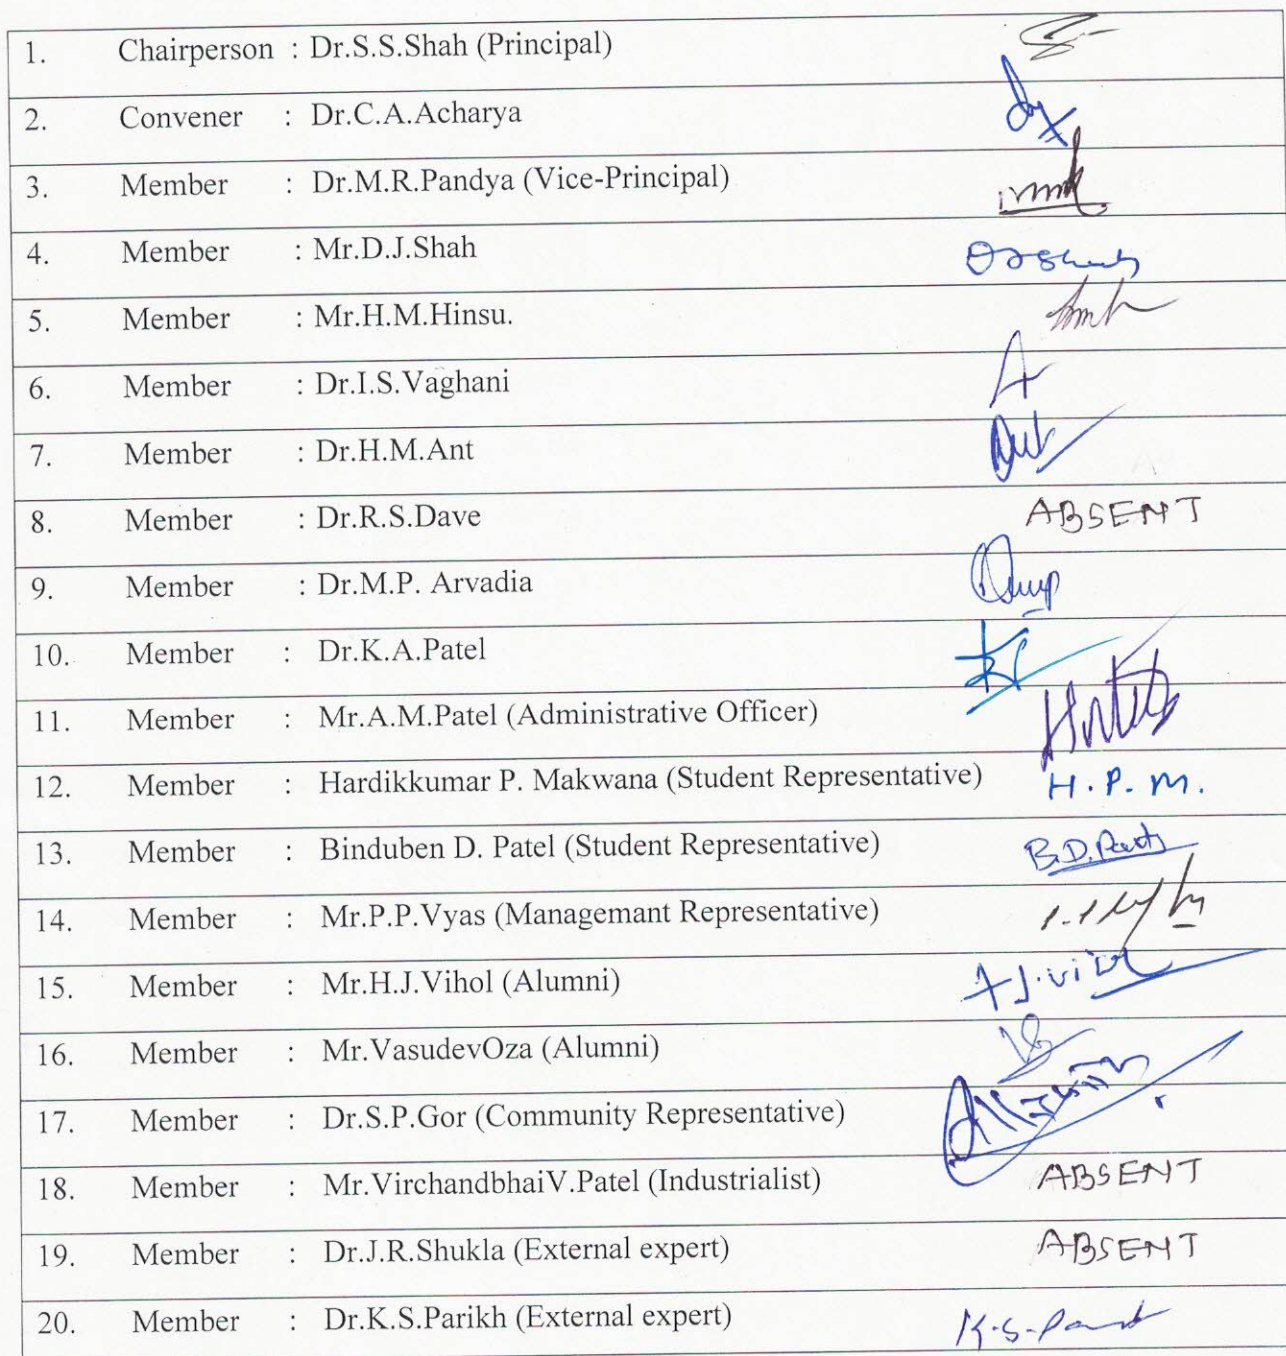 1. Chairperson : Dr.S.S.Shah (Principal)
2. Convener : Dr.C.A.Acharya
3. Member : Dr.M.R.Pandya (Vice-Principal)
4. Member : Mr.D.J.Shah
5. Member : Mr.H.M.Hinsu.
6. Member : Dr.I.S.Vaghani
7. Member : Dr.H.M.Ant
8. Member : Dr.R.S.Dave ABSENT
9. Member : Dr.M.P. Arvadia
10. Member : Dr.K.A.Patel
11. Member : Mr.A.M.Patel (Administrative Officer)
12. Member : Hardikkumar P. Makwana (Student Representative) H.P.M.
13. Member : Binduben D. Patel (Student Representative) B.D.
14. Member : Mr.P.P.Vyas (Managemant Representative)
15. Member : Mr.H.J.Vihol (Alumni)
16. Member : Mr.VasudevOza (Alumni)
17. Member : Dr.S.P.Gor (Community Representative)
18. Member : Mr.VirchandbhaiV.Patel (Industrialist) ABSENT
19. Member : Dr.J.R.Shukla (External expert) ABSENT
20. Member : Dr.K.S.Parikh (External expert) K.S.